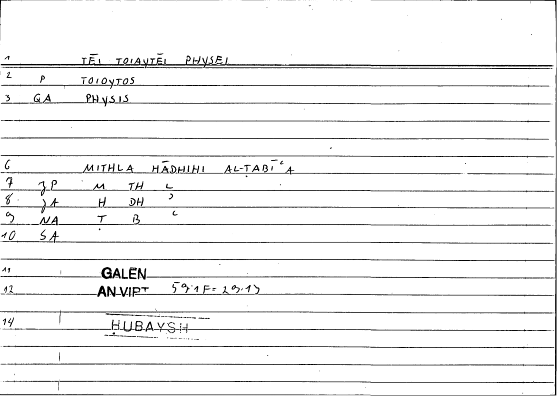 1 TĒI TOIAYTĒI PHYSEI
2 P TOIOYTOS
3 GA PHYSIS
6 MITHLA HĀDHIHI AL-ṬABĪʿA
7 JP M TH L
8 JA H DH ʾ
9 NA Ṭ B ʿ
10 SA
11 GALEN
12 AN VIRT 59.1F = 29.19
14 ḤUBAYSH